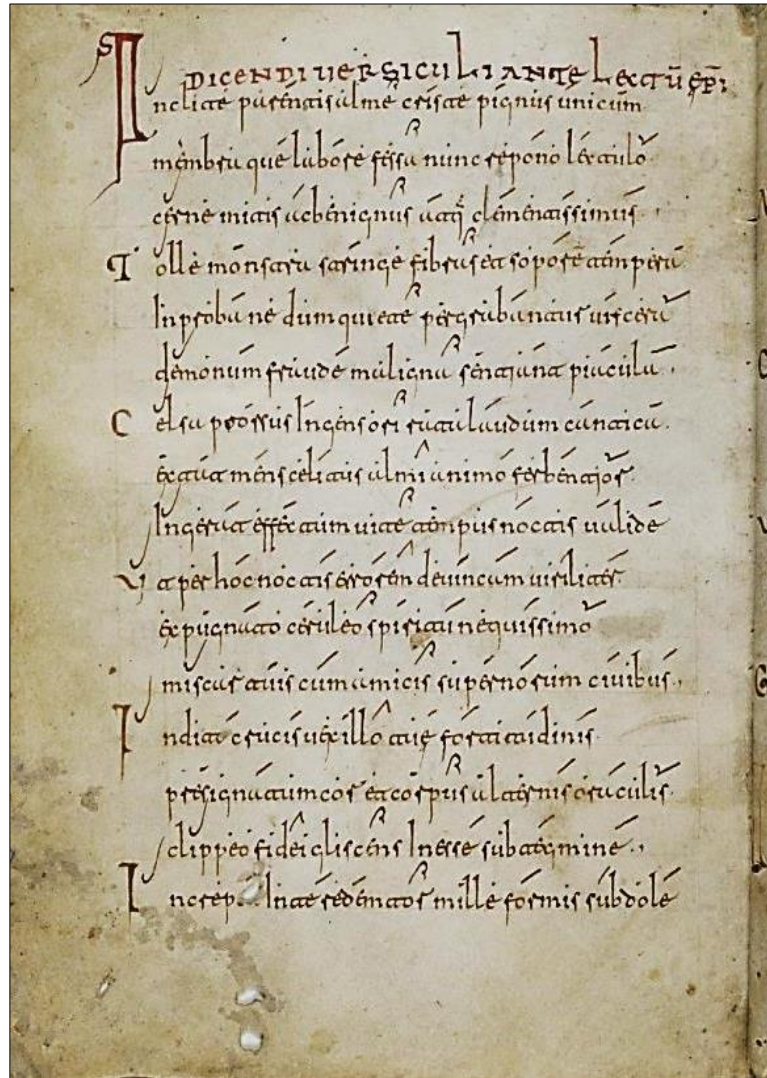 DICENDI UERSICULI ANTE LECTŪ
Inclite parentis alme criste pignus unicum
membra que labore fessa nunc repono lectulo
cerne mitis ac benignus atq clementissimus
Tolle monstra stringe fibras et sopore tempera
Inproba ne dum quiete pergrabantus uiscera
demonum fraude maligna sentiant piacula
Celsa prorsus Ingens ori ructa laudum cantica
extat mens celitus almi animo ferbentior
Ingerat effectum uite tempus noctis ualide
Ut per hoc noctis erorem deuincam uiriliter
expugnato ceruleo spiritu nequissimo
miscar tuis cum amicis supernorum ciuibus
Indita crucis uexillo tue fortitudinis
persignatum cor et corpus alternis oraculis
clippeo fidei gliscens Inesse subtermine
Inte redemtor mille formis subdole